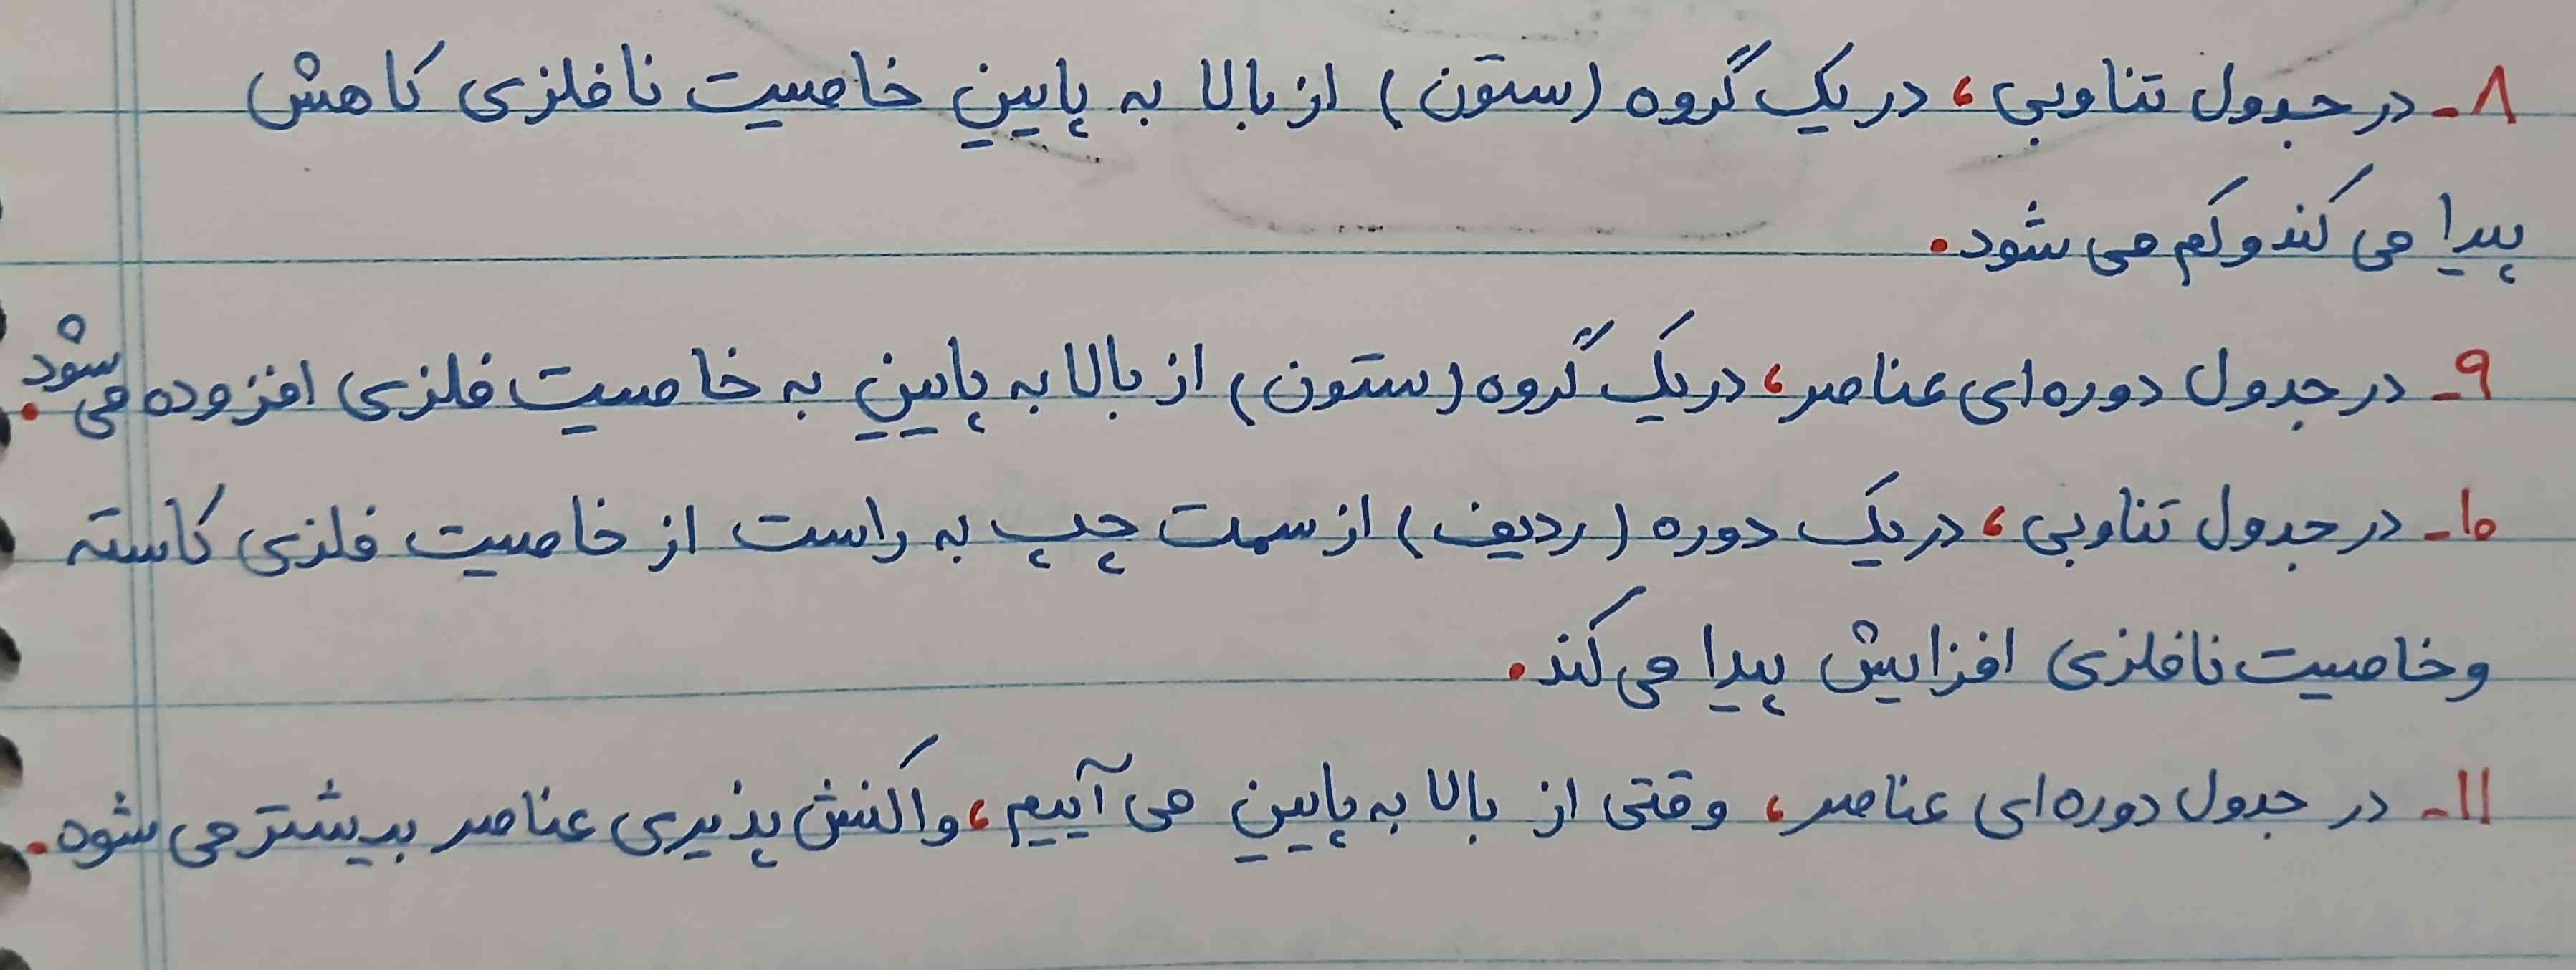 ۸- در جدول تناوبی، در یک گروه (ستون) از بالا به پایین خاصیت نافلزی کاهش
پیدا می کند و کم می شود.
۹- در جدول دوره ای عناصر، در یک گروه (ستون) از بالا به پایین به خاصیت فلزی افزوده می شود.
۱۰- در جدول تناوبی، در یک دوره (ردیف) از سمت چپ به راست از خاصیت فلزی کاسته
و خاصیت نافلزی افزایش پیدا می کند.
۱۱- در جدول دوره ای عناصر، وقتی از بالا به پایین می آییم، واکنش پذیری عناصر بیشتر می شود.